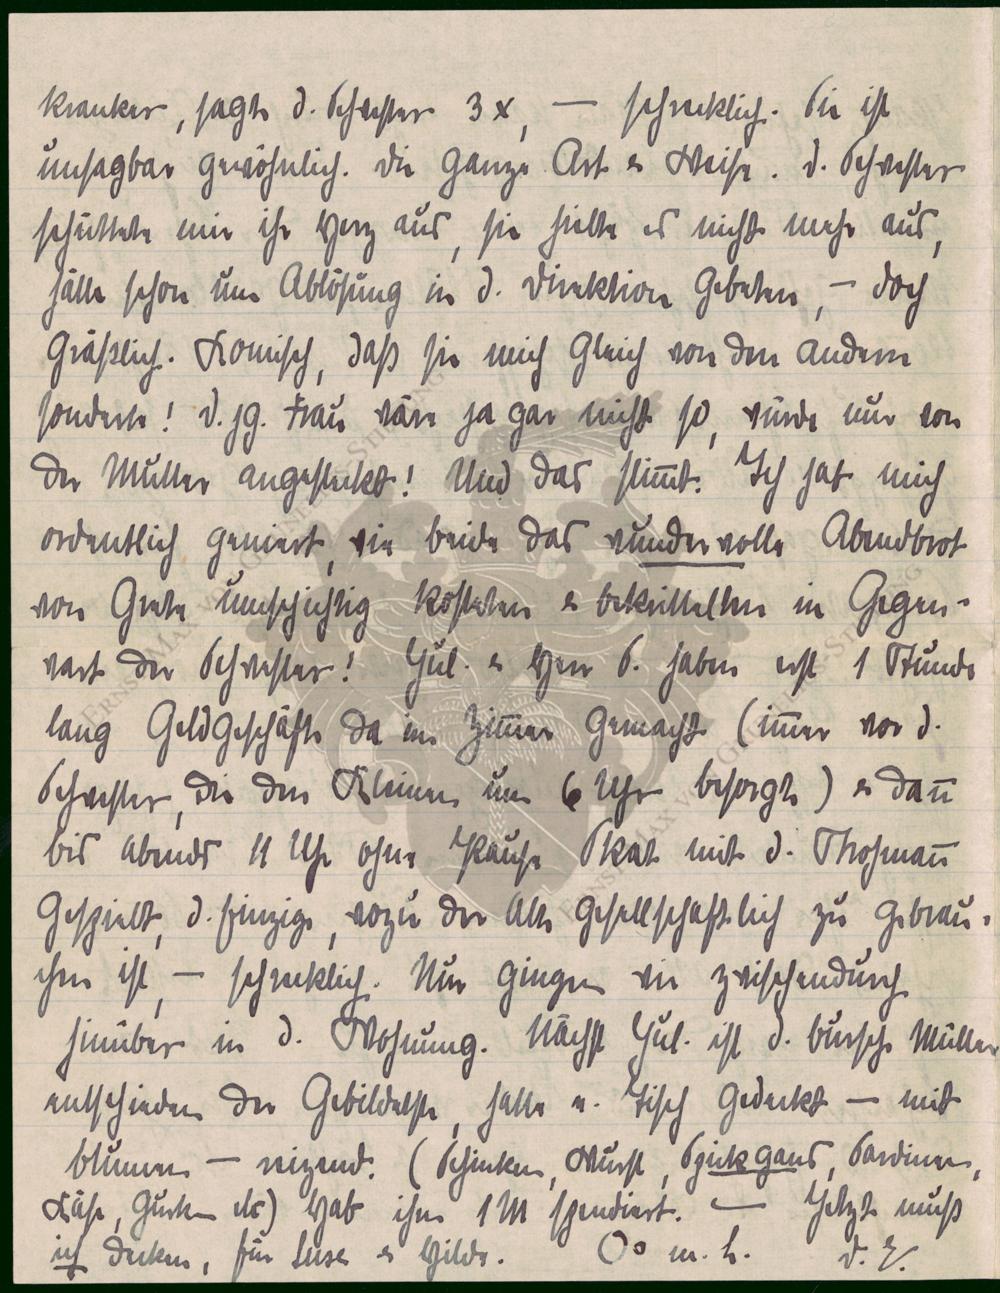 kranker, sagte d. Schwester 3 x, — schrecklich. Sie ist
unsagbar gewöhnlich. Die ganze Art & Weise. D. Schwester
schüttete mir ihr Herz aus, sie hielte es nicht mehr aus,
hätte schon um Ablösung in d. Direktion gebeten, — doch
gräßlich. Komisch, daß sie mich gleich von den andern
sonderte! D. jg. Frau wäre ja gar nicht so, würde nur von
der Mutter angesteckt! Und das stimt. Ich hab mich
ordentlich geniert, wie beide das wundervolle Abendbrot
von Grete umschichtig kosteten & bekrittelten in Gegen-
wart der Schwester! Jul. & Herr S. haben erst 1 Stunde
lang Geldgeschäfte da im Zimer gemacht (imer vor d.
Schwester, die den Kleinen um 6 Uhr besorgte) & dan
bis abends 11 Uhr ohne Pause Skat mit d. Thoman
gespielt, d. Einzige, wozu der Alte gesellschaftlich zu gebrau-
chen ist, — schrecklich. Nur gingen wir zwischendurch
hinüber in d. Wohnung. Nächst Jul. ist d. Bursche Müller
entschieden der Gebildetste, hatte n. Tisch gedeckt — mit
Blumen — reizend. (Schinken, Wurst, Spickgans, Sardinen,
Käse, Gurken etc) Hab ihm 1 M spendiert. — Jetzt muß
ich decken, für Suse & Hilde. m. L. D. E.
ERNST-MAX VON GRUNELIUS-STIFTUNG
ERNST-MAX VON GRUNELIUS-STIFTUNG